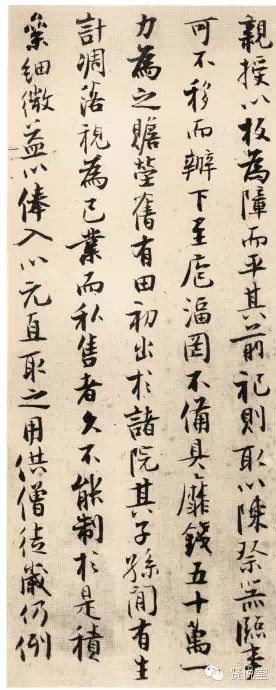 親授以板為障而平其前祀則取以陳祭器臨
可不移而辦下至庖湢罔不備具靡錢五十萬一
力為之贍塋舊有田初出於諸院其子孫間有生
計凋落視為己業而私售者久不能制於是積
絫細微益以俸入以元直取之用供僧徒歲仍例